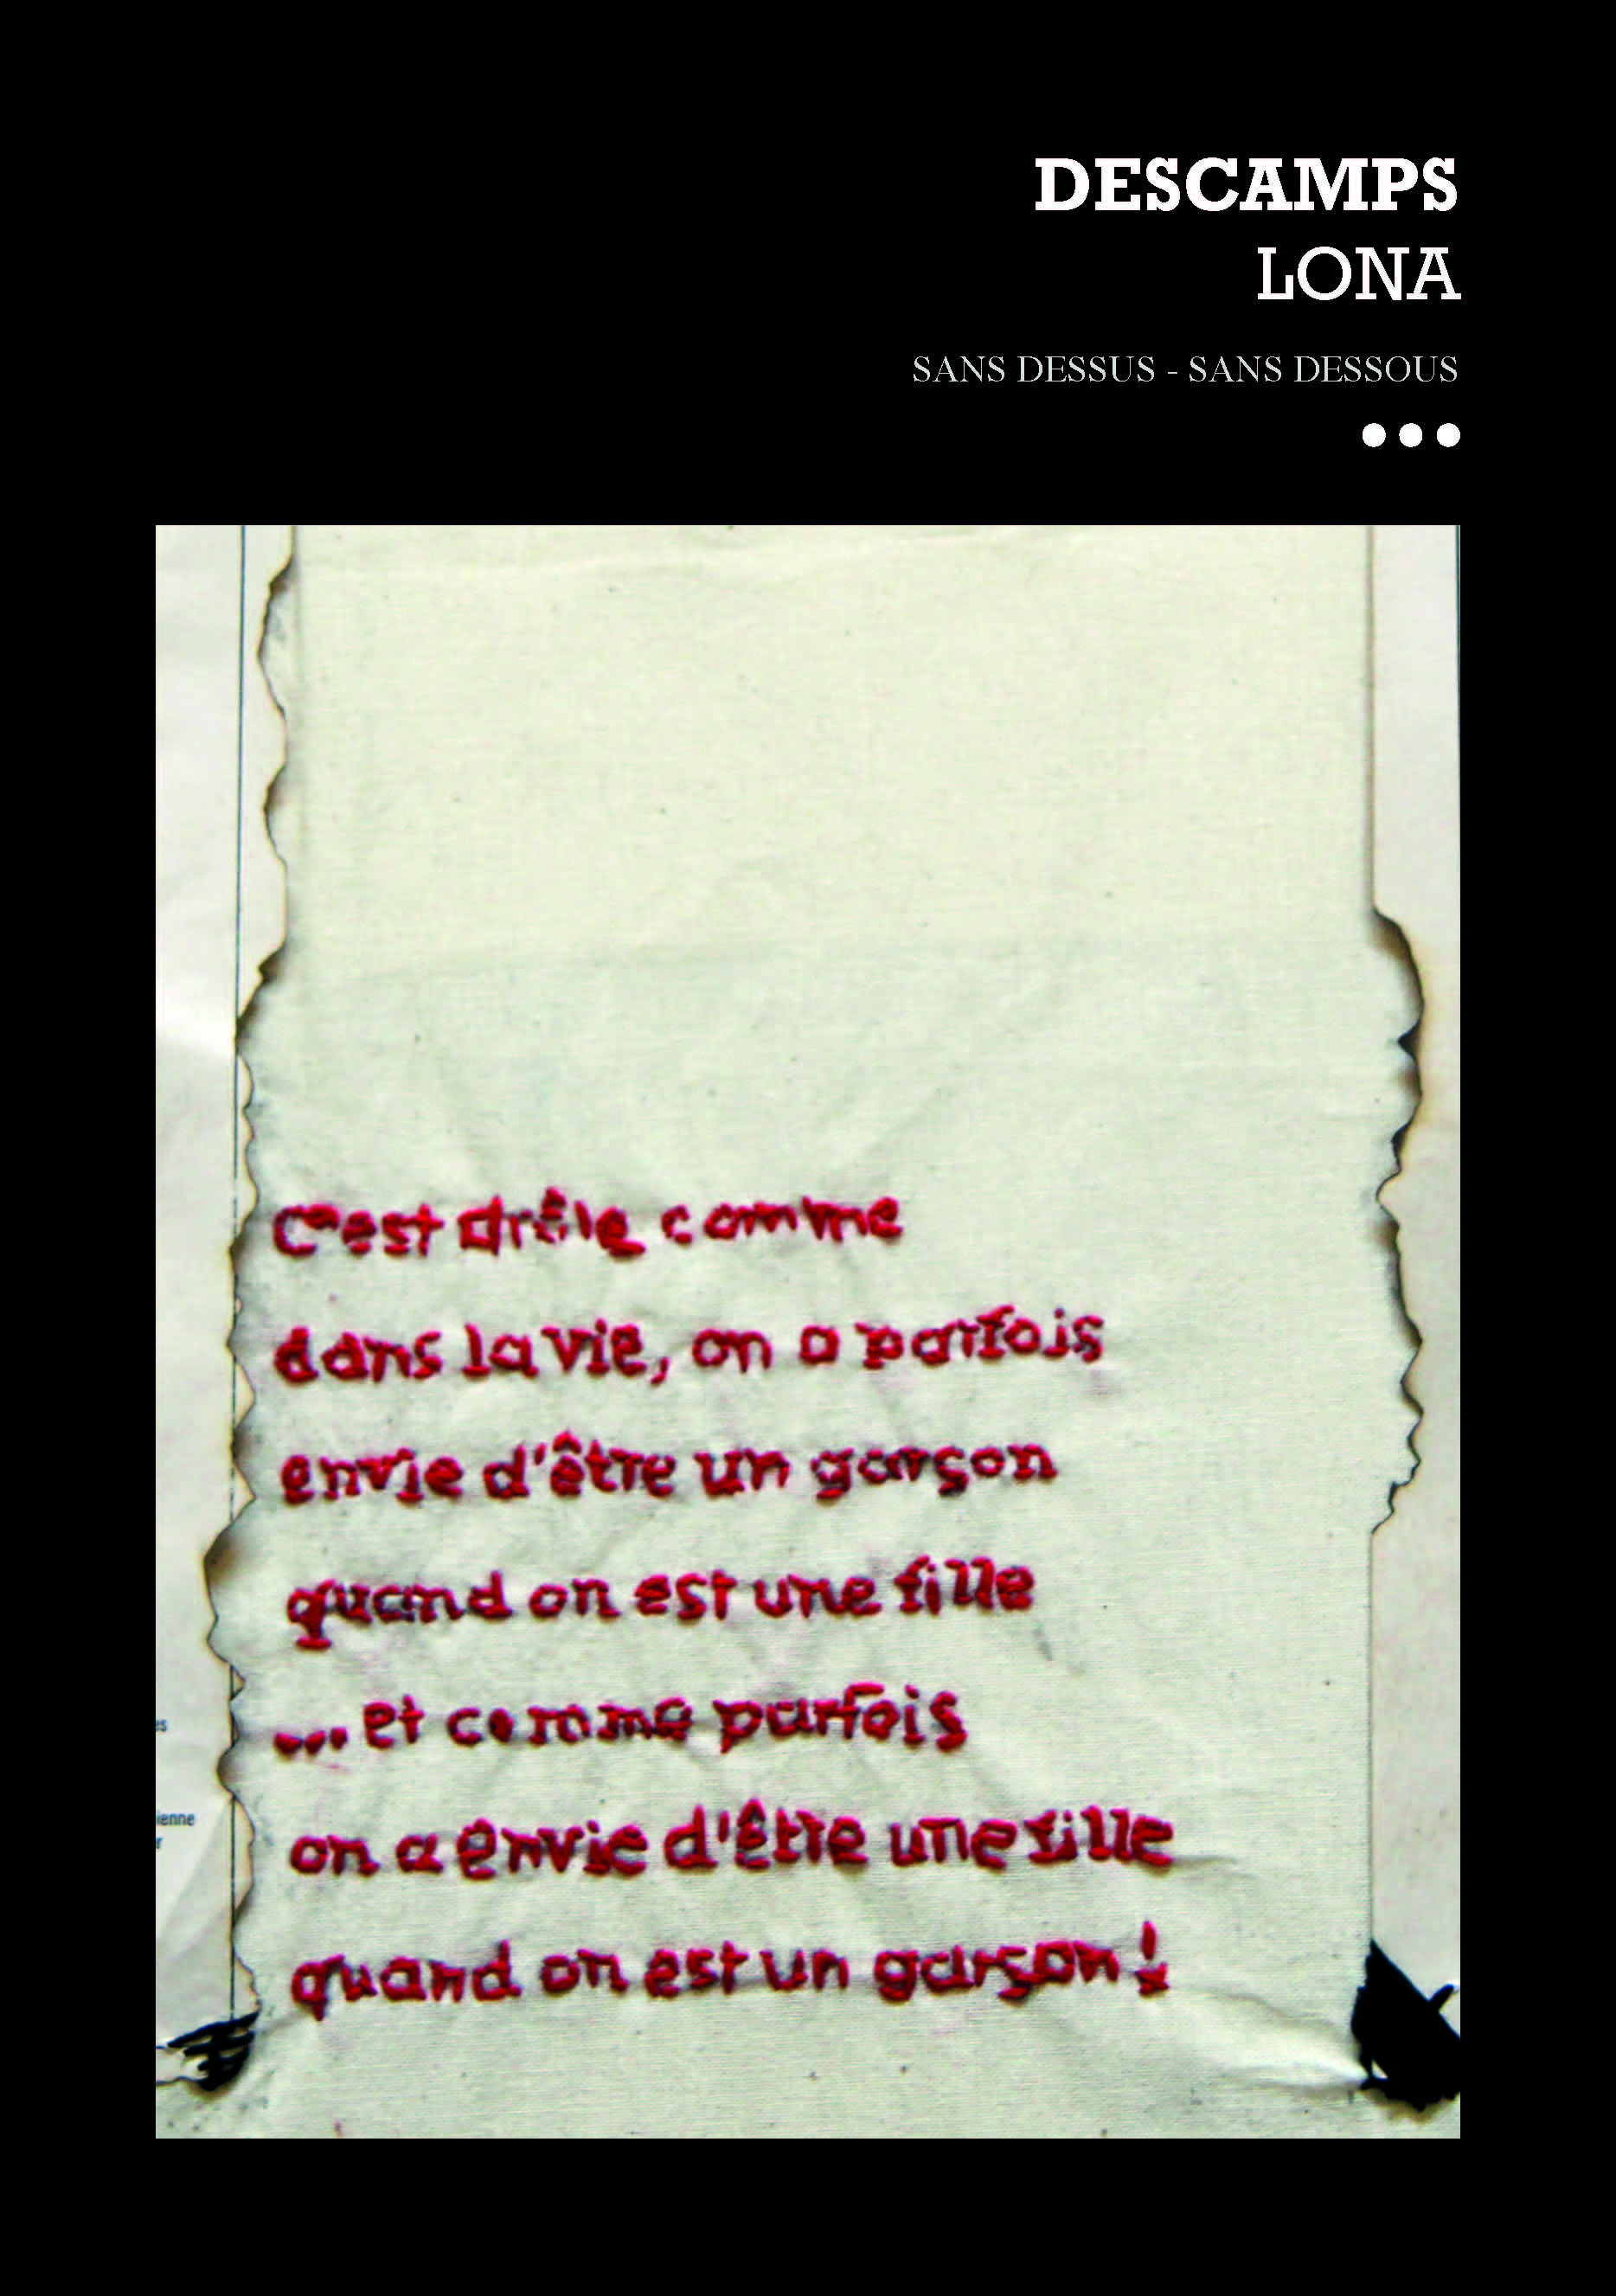 DESCAMPS
LONA
SANS DESSUS - SANS DESSOUS
c'est drôle comme
dans la vie, on a parfois
envie d'être un garçon
quand on est une fille
... et comme parfois
on a envie d'être une fille
quand on est un garçon !